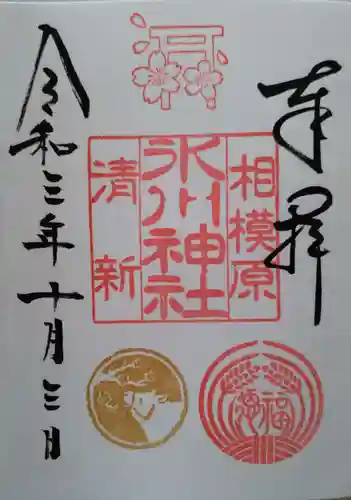 奉拝
相模原
氷川神社
清新
福
令和三年十月三日